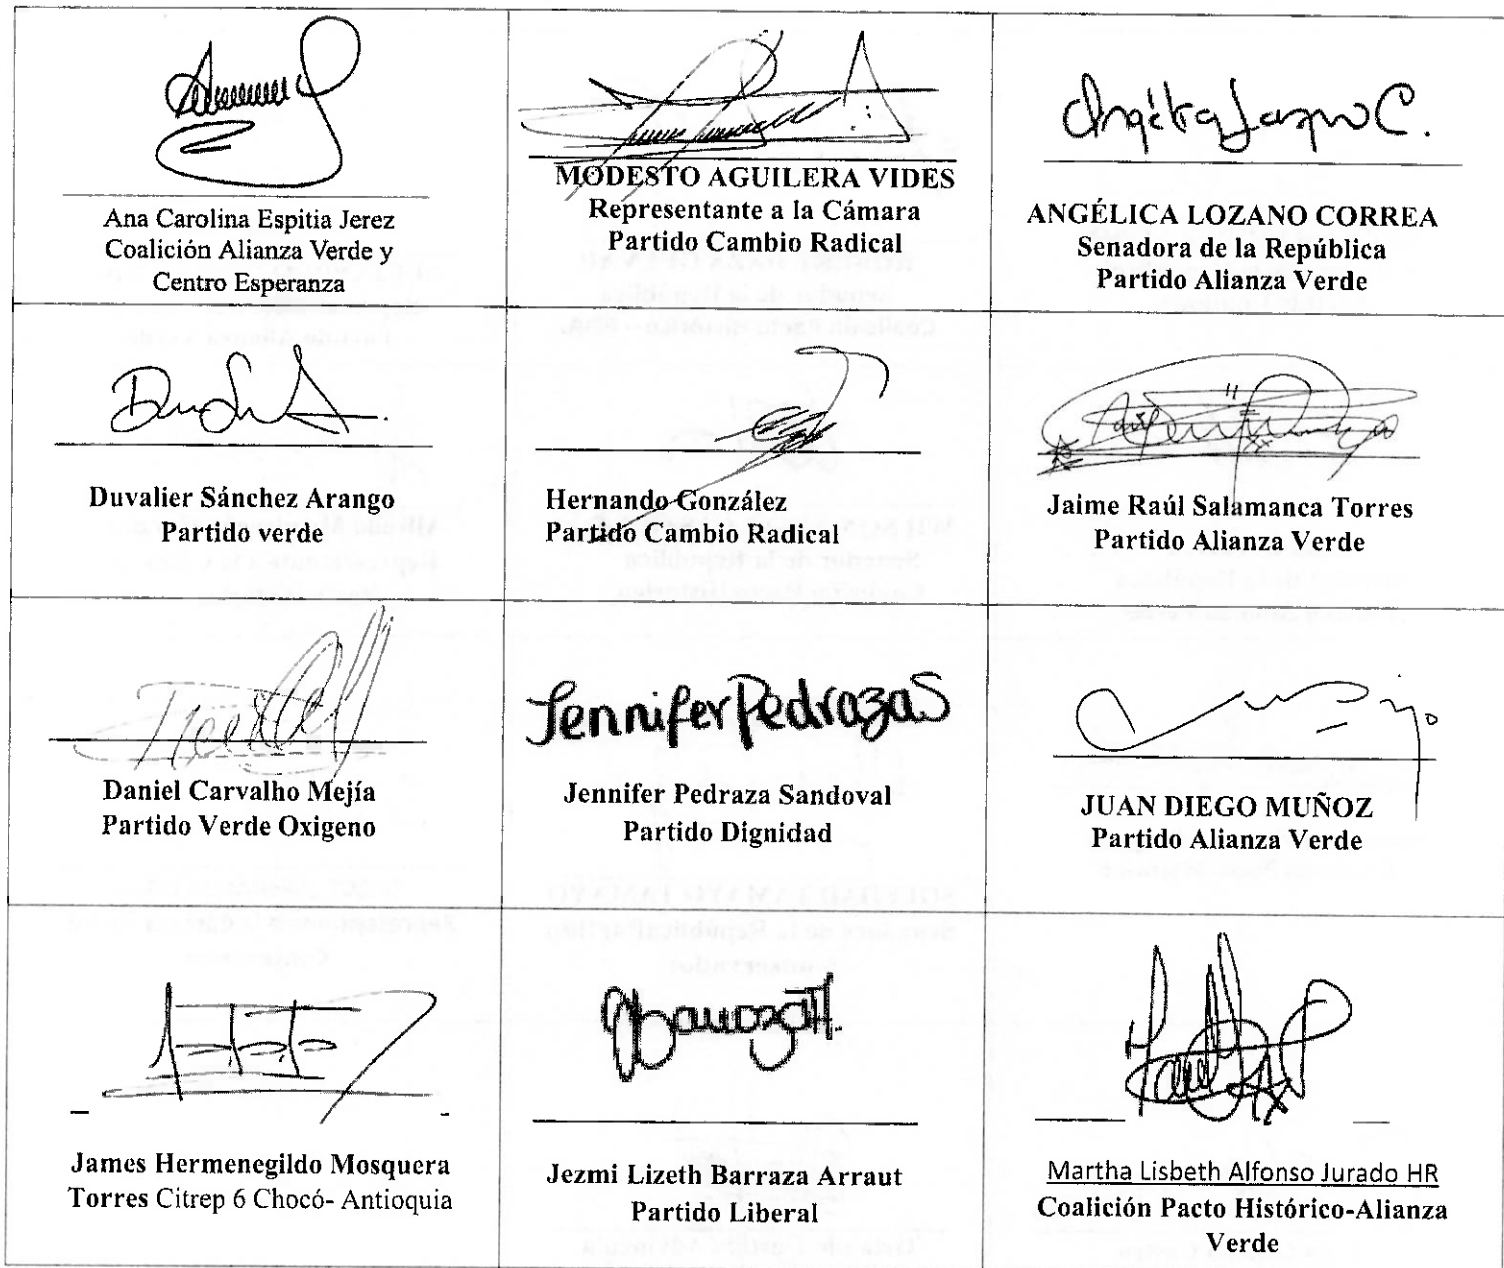 Ana Carolina Espitia Jerez
Coalición Alianza Verde y
Centro Esperanza
MODESTO AGUILERA VIDES
Representante a la Cámara
Partido Cambio Radical
Angélica Lozano C.
ANGÉLICA LOZANO CORREA
Senadora de la República
Partido Alianza Verde
Duvalier Sánchez Arango
Partido verde
Hernando González
Partido Cambio Radical
Jaime Raúl Salamanca Torres
Partido Alianza Verde
Daniel Carvalho Mejía
Partido Verde Oxigeno
Jennifer Pedraza S
Jennifer Pedraza Sandoval
Partido Dignidad
JUAN DIEGO MUÑOZ
Partido Alianza Verde
James Hermenegildo Mosquera
Torres Citrep 6 Chocó- Antioquia
Jezmi Lizeth Barraza Arraut
Partido Liberal
Martha Lisbeth Alfonso Jurado HR
Coalición Pacto Histórico-Alianza
Verde